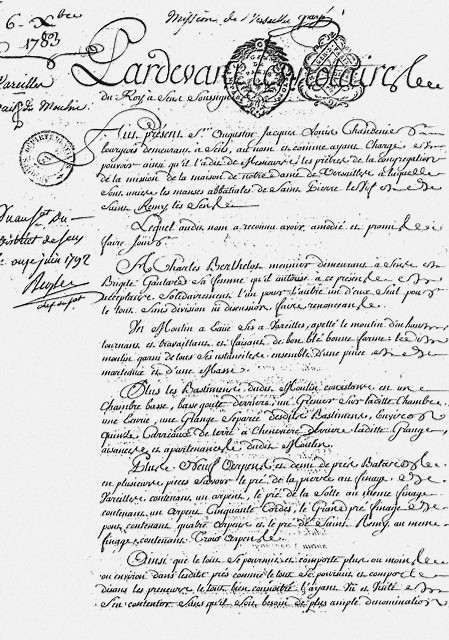 6 Xbre
1783
Mission de Versailles
Pardevant Notaires
du Roy à Sens Soussignés
Fut présent Sr. Augustin Jacques Louis Chandenier
bourgeois demeurant à Sens, au nom et comme ayant Charge et
pouvoir ainsi qu'il l'a dit de Messieurs les prêtres de la Congrégation
de la mission de la maison de notre dame de Versailles à laquelle
Sont unies les manses abbatiales de Saint Pierre le Vif et de
Saint Remy lès Sens
Lequel audit nom a reconnu avoir, amodié et promet
faire jouir
A Charles Berthelot meunier demeurant à Sens et
Brigte Gautard Sa femme qu'il autorise à ce présent
acceptans Solidairement l'un pour l'autre un d'eux Seul pour
le tout Sans division ni discusion faire renonçant
Un Moulin à Eaüe Sis à Vareilles, apellé le moulin d'en haut
tournant et travaillant et faisant de bon blé bonne farine, led.
moulin garni de tous Ses ustanciles ensemble d'une pince
marteaux et d'une Masse.
Plus les Bastimens dudit Moulin consistans en une
Chambre basse, basse goute derriere, un Grenier Sur laditte Chambre,
une Ecurie, une Grange Separée desdits Bastimens, Environ
quinze Carreaux de terre à Cheneviere derriere laditte Grange,
aisances et apartenances dudit Moulin.
Plus Neuf Arpens et demi de prés
en plusieurs pieces Savoir le pré de la pierre au finage
Vareilles contenant un arpent, le pré de la Volte au meme finage
contenant un arpent Cinquante Cordes, le Grand pré finage
pont contenant quatre arpens et le pré de Saint Remy au meme
finage, contenant Trois arpens
Ainsi que le tout Se poursuit et comporte plus ou moins
ou environ dans lesdits prés comme le tout Se poursuit et comporte
disans les preneurs le tout bien connoitre l'ayant Vu et Visité et
S'en contenter Sans qu'il Soit besoin de plus ample dénomination
District de Sens
onze juin 1792